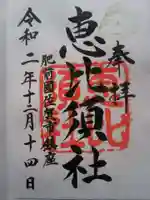 奉拝
恵比須社
肥前國佐賀市鎮座
令和二年十二月十四日